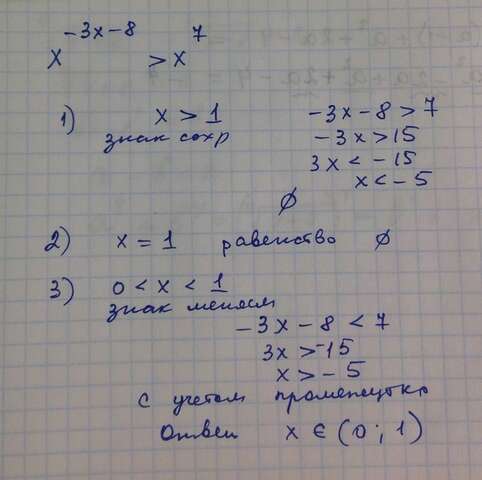 x^(-3x-8) > x^7
1) x > 1 -3x-8 > 7
знак сохр -3x > 15
3x < -15
x < -5
∅
2) x = 1 равенство ∅
3) 0 < x < 1
знак меняем
-3x-8 < 7
3x > -15
x > -5
с учетом промежутка
Ответ x ∈ (0; 1)